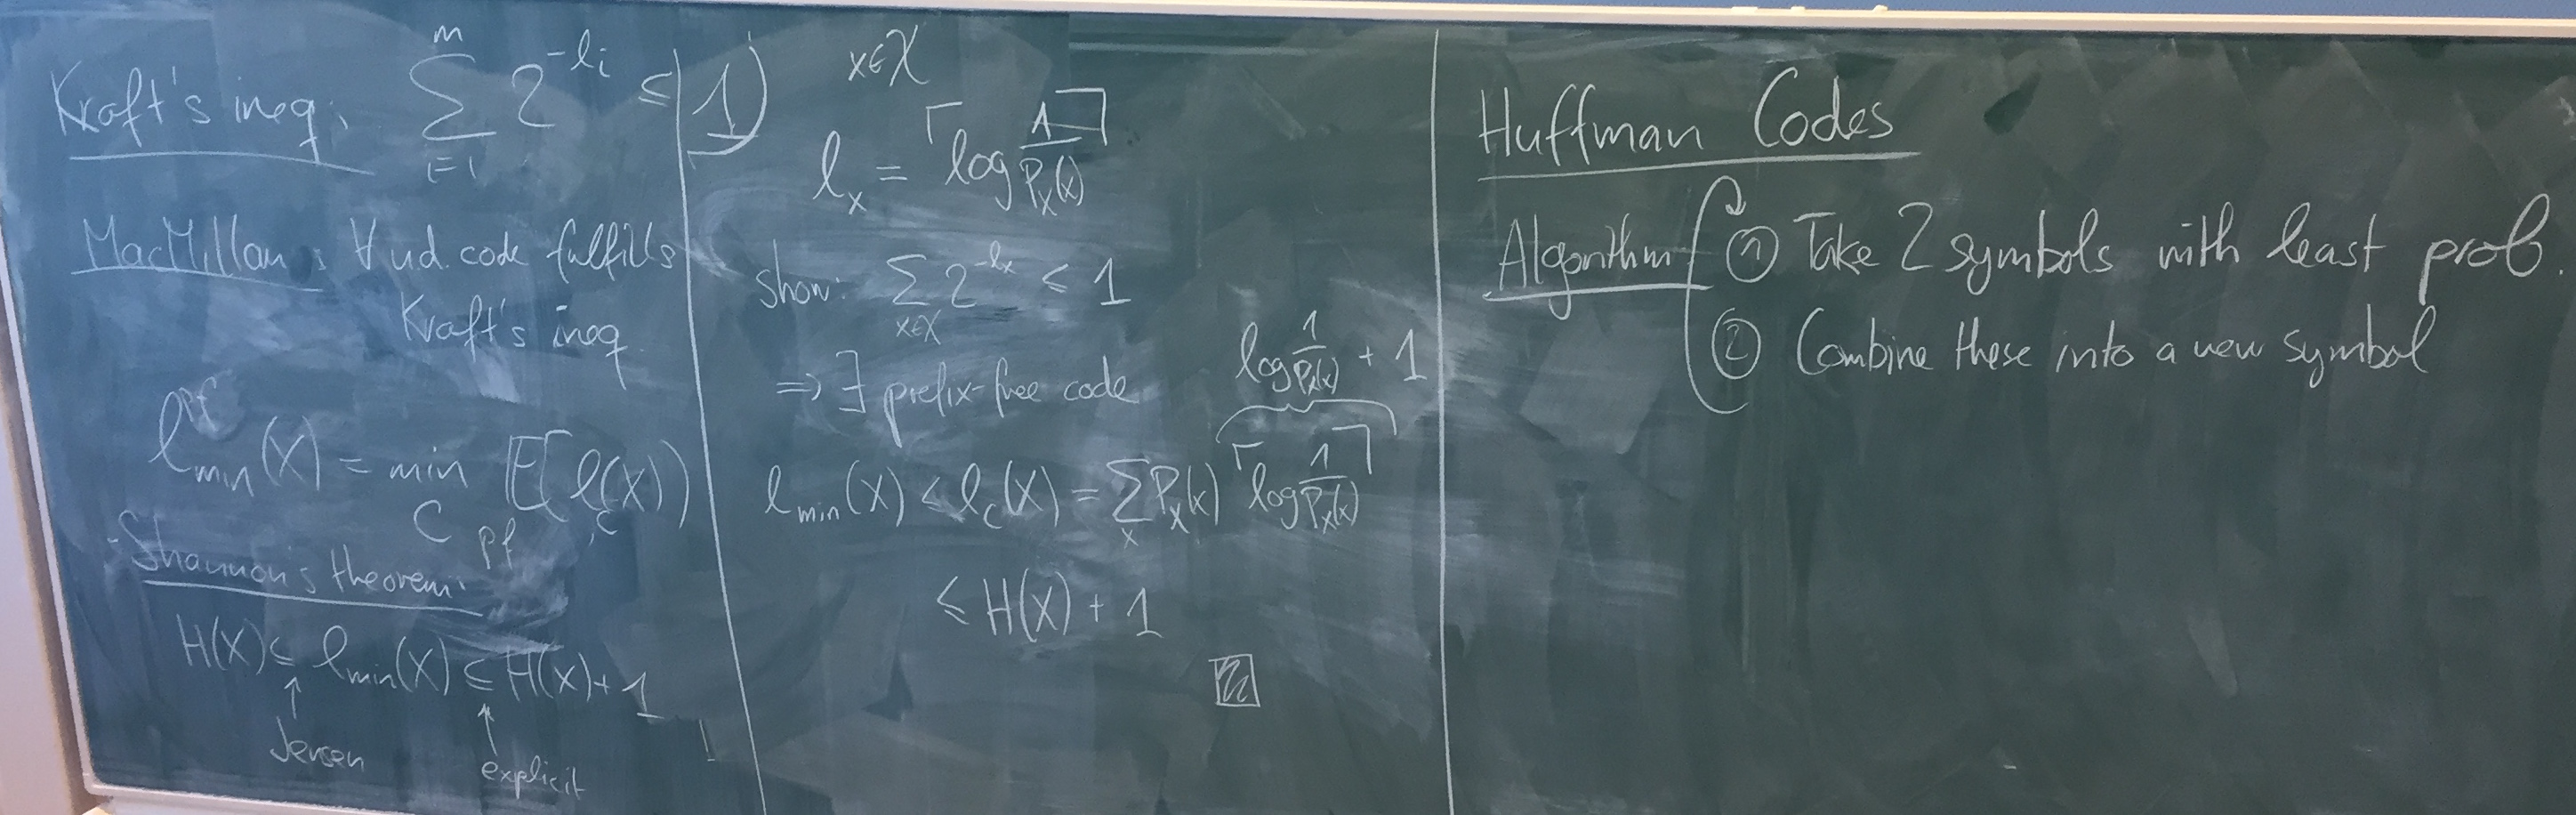 Kraft's ineq. ∑_{i=1}^{m} 2^{-l_i} ≤ 1
MacMillan: ∀ u.d. code fulfills
Kraft's ineq.
l^{pf}_{min}(X) = min_{C pf} E[l_C(X)]
Shannon's theorem:
H(X) ≤ l_{min}(X) ≤ H(X) + 1
↑ Jensen
↑ explicit
x∈X
l_x = ⌈log 1/P_X(x)⌉
show: ∑_{x∈X} 2^{-l_x} ≤ 1
⇒ ∃ prefix-free code
log 1/P_X(x) + 1
l_{min}(X) ≤ l_C(X) = ∑_x P_X(x) ⌈log 1/P_X(x)⌉
≤ H(X) + 1
Huffman Codes
Algorithm ① Take 2 symbols with least prob.
② Combine these into a new symbol